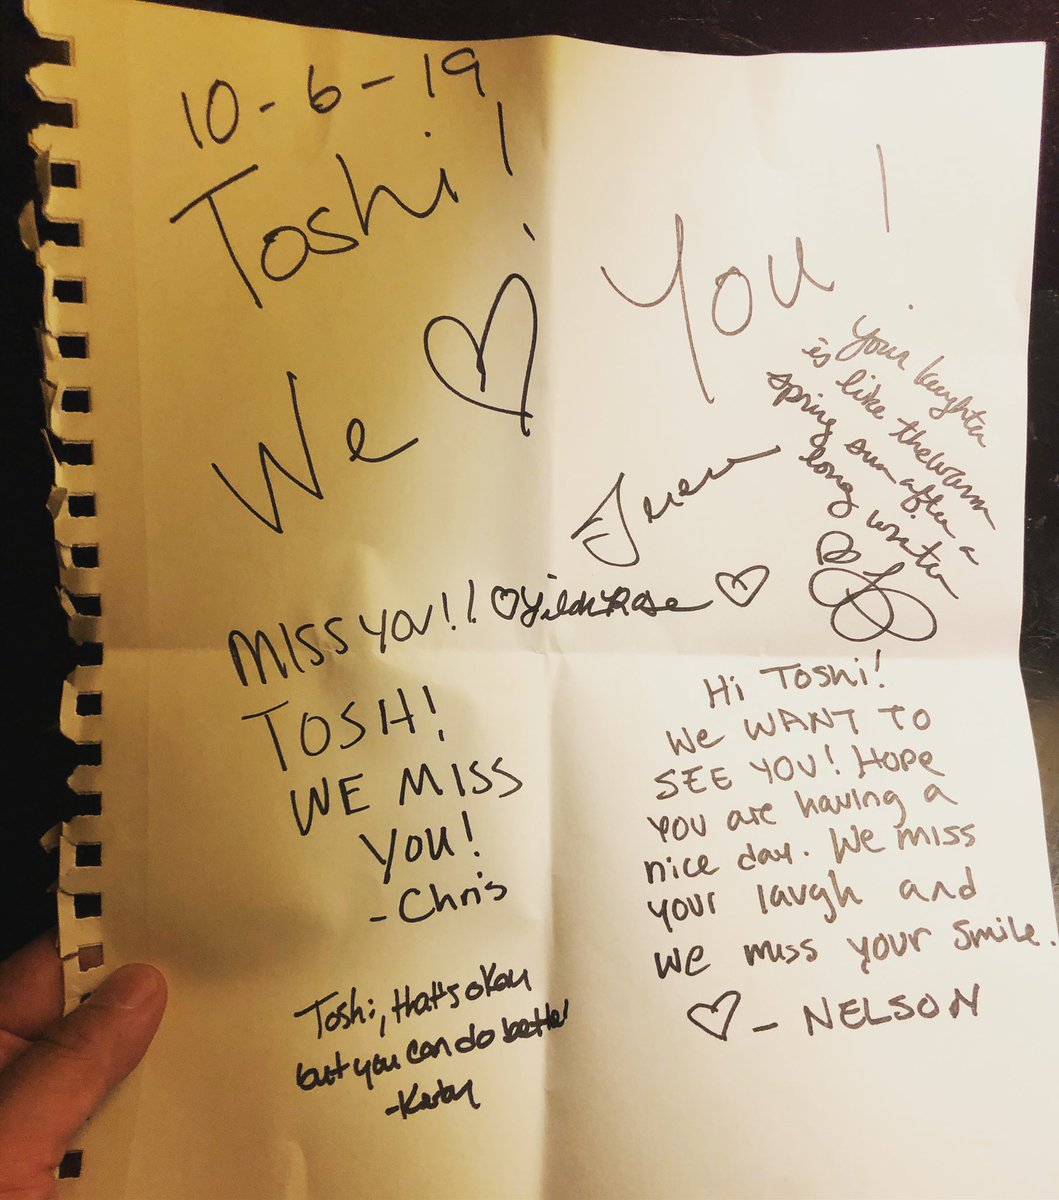 10-6-19
Toshi!
We ♡ You!
Your laughter
is like the warm
spring sun after a
long winter
MISS YOU!! ♡ Rose ♡
TOSH!
WE MISS
YOU!
-Chris
Hi Toshi!
We WANT TO
SEE YOU! HOPE
YOU are having a
nice day. We miss
your laugh and
we miss your smile.
♡- NELSON
Toshi, that's okay
but you can do better